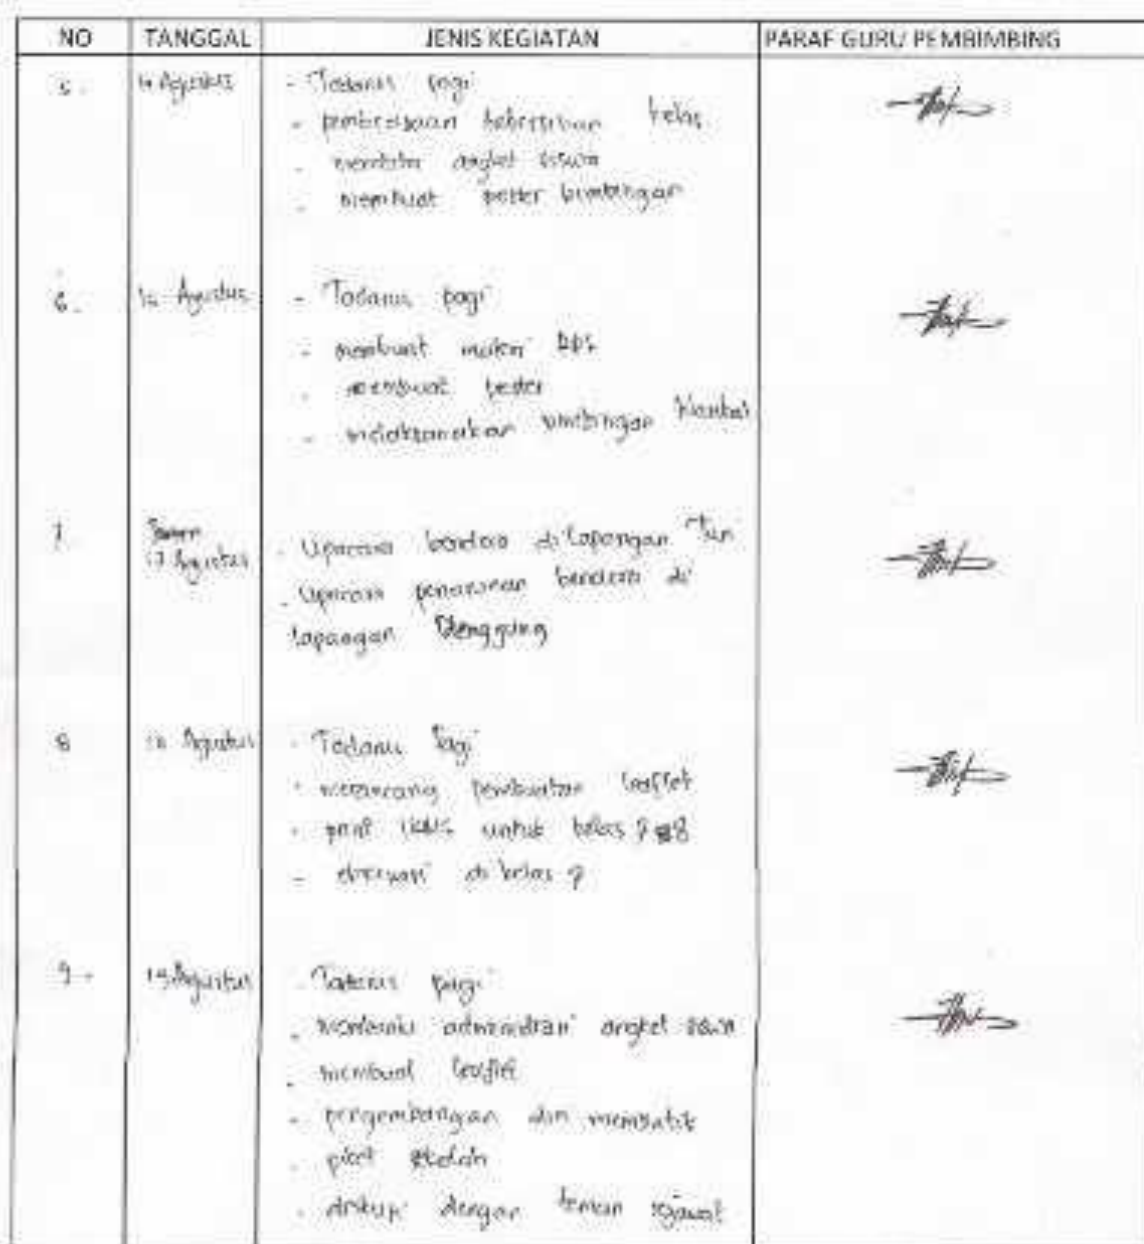 NO TANGGAL JENIS KEGIATAN PARAF GURU PEMBIMBING
5. Agustus - Tadarus pagi
- kelas
- angket siswa
- membuat poster bimbingan
6. Agustus - Tadarus pagi
- membuat materi
- membuat poster
- melaksanakan bimbingan klasikal
7. 17 Agustus - Upacara bendera di lapangan
- Upacara penurunan bendera di
lapangan Denggung
8 18 Agustus - Tadarus pagi
- merancang pembuatan leaflet
- print untuk kelas 7 8
- di kelas 7
9. 19 Agustus - Tadarus pagi
- administrasi angket siswa
- membuat leaflet
- pengembangan
- piket sekolah
- diskusi dengan teman sejawat